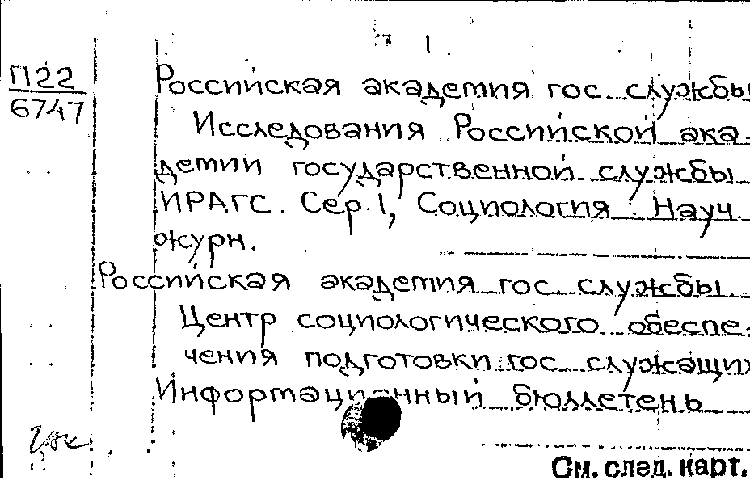 П22
6747
Российская академия гос. службы
Исследования Российской ака-
демии государственной службы
ИРАГС. Сер. 1, Социология. Науч
журн.
Российская академия гос. службы
Центр социологического обеспе-
чения подготовки гос. служащих
Информационный бюллетень
См. след. карт.